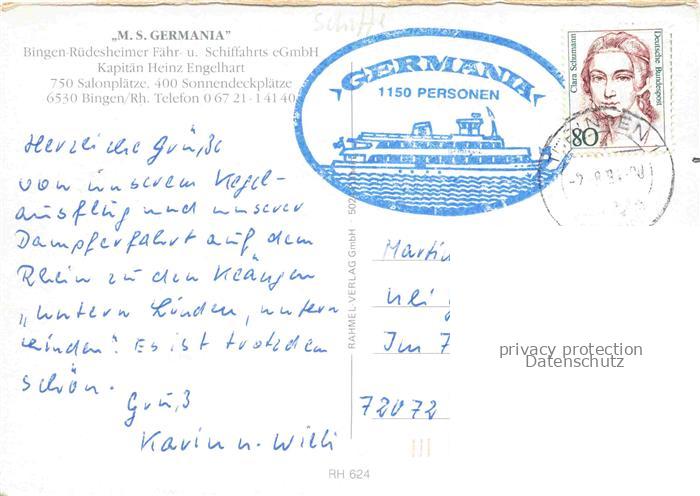 „M. S. GERMANIA”
Bingen-Rüdesheimer Fähr- u. Schiffahrts eGmbH
Kapitän Heinz Engelhart
750 Salonplätze, 400 Sonnendeckplätze
6530 Bingen/Rh. Telefon 0 67 21 - 1 41 40
Schiffe
GERMANIA
1150 PERSONEN
Clara Schumann
Deutsche Bundespost
80
Herzliche Grüße
von unserem Kegel-
ausflug und unserer
Dampferfahrt auf dem
Rhein zu den Klängen
„untern Linden, untern
Linden". Es ist trotzdem
schön.
Gruß
Karin u. Willi
RAHMEL-VERLAG GmbH
Martin
Im
72072
privacy protection
Datenschutz
RH 624